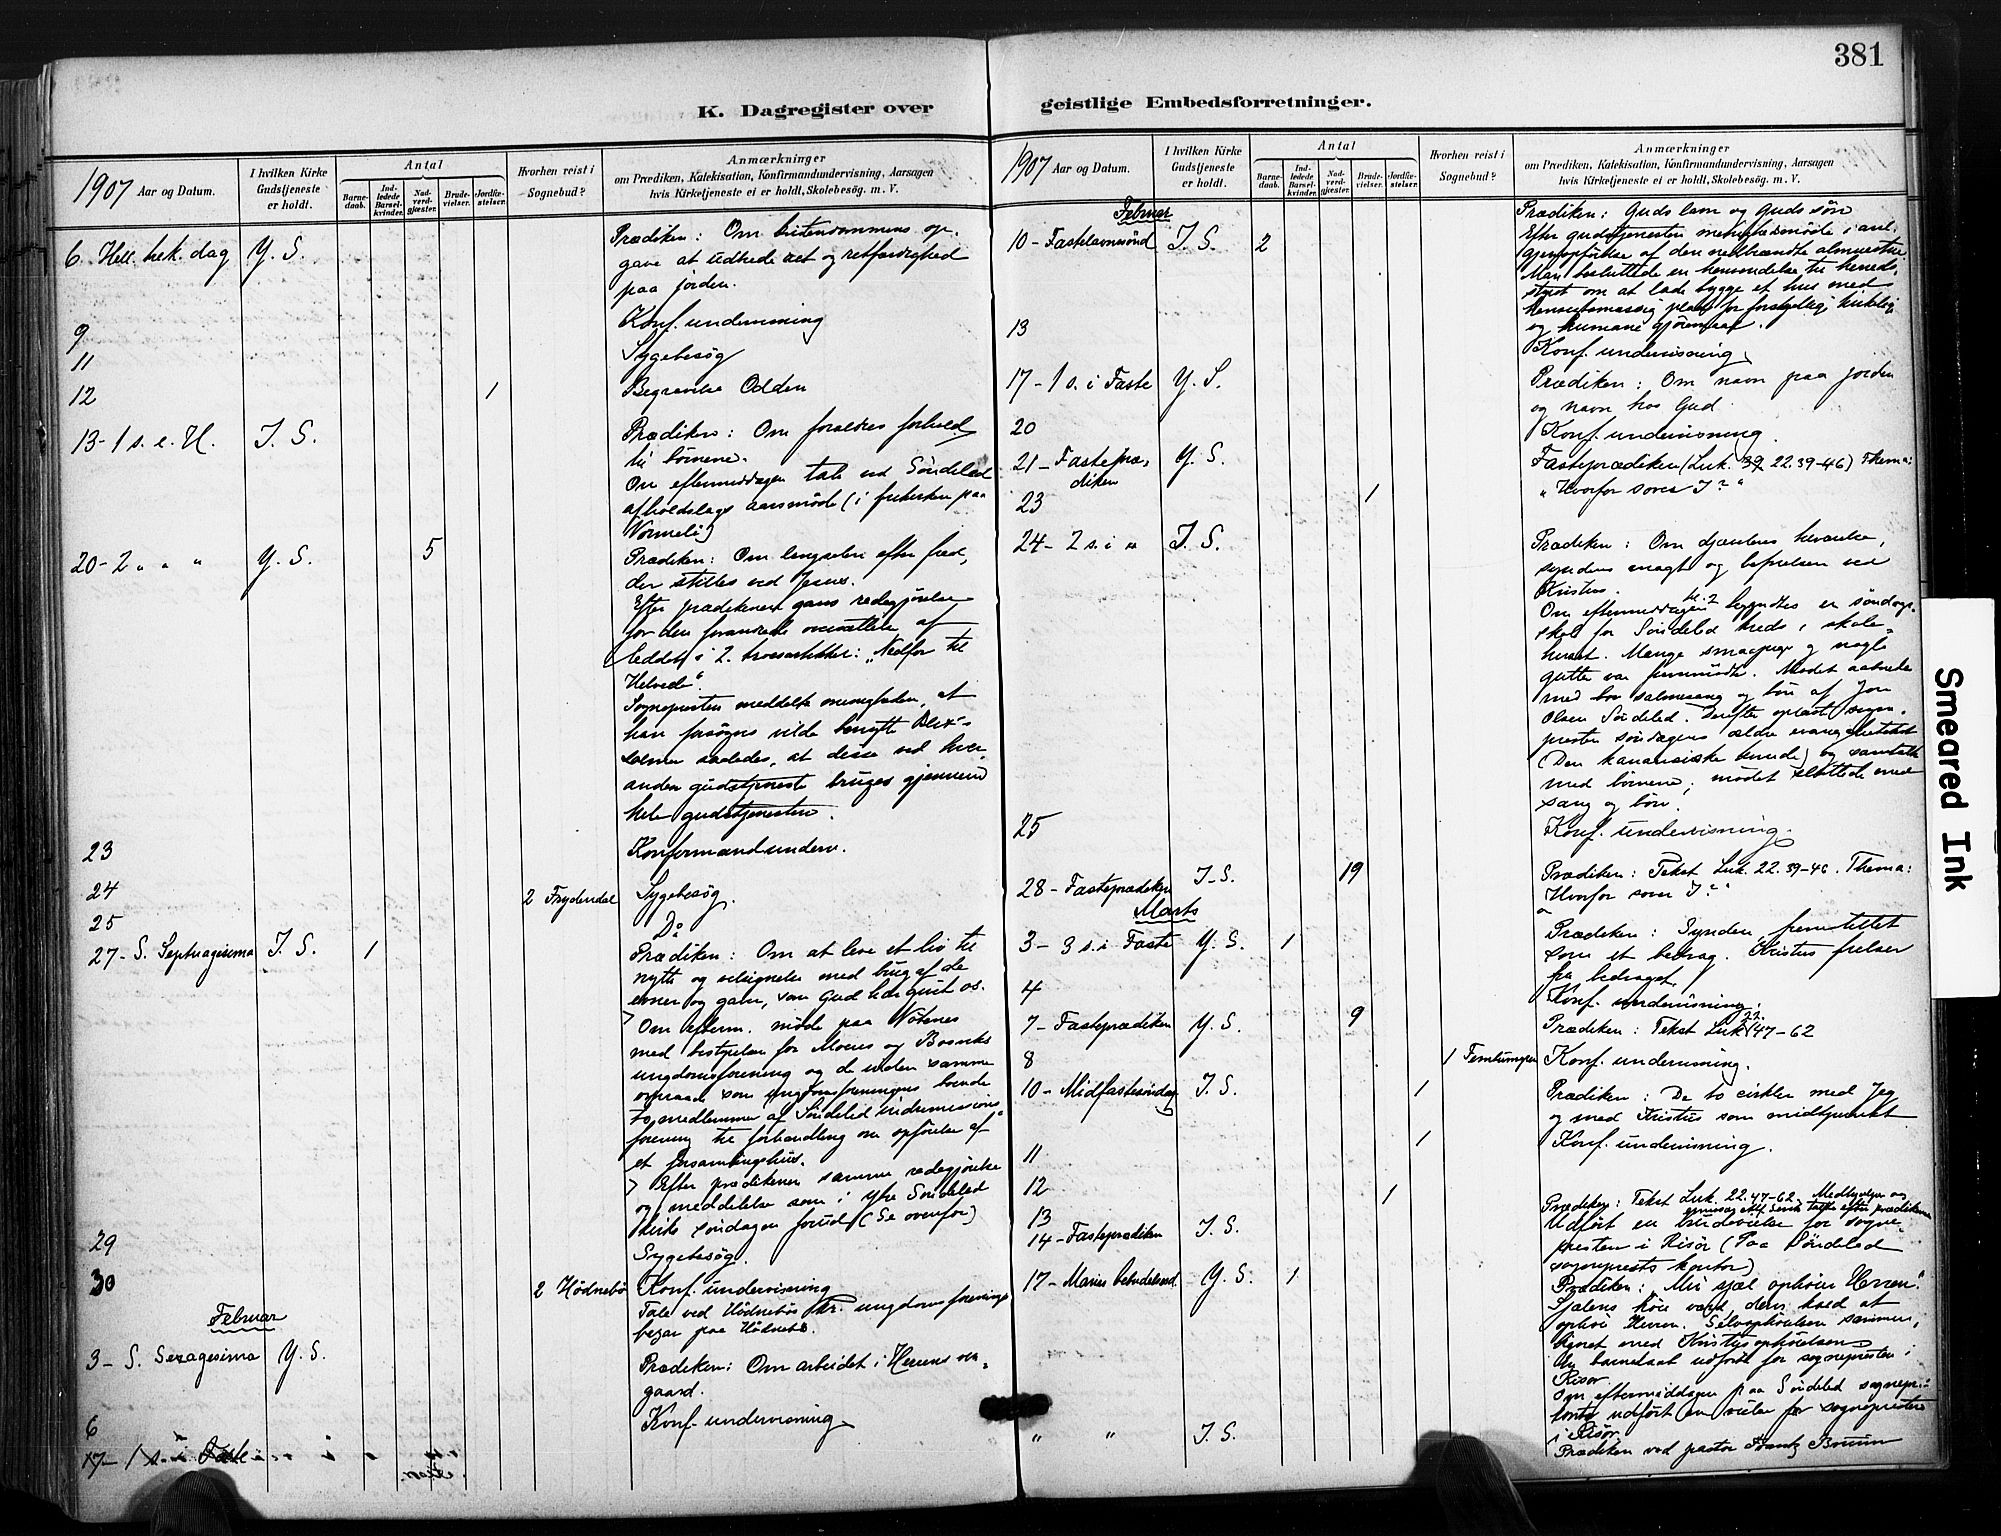 381
K. Dagregister over
geistlige Embedsforretninger.
1907 Aar og Datum.
I hvilken Kirke Gudstjeneste er holdt.
Antal
Barnedaab.
Indledede Barselkvinder.
Nadverdgjæster.
Brudevielser.
Jordfæstelser.
Hvorhen reist i Sognebud?
Anmærkninger
om Prædiken, Katekisation, Konfirmandundervisning, Aarsagen
hvis Kirketjeneste ei er holdt, Skolebesøg. m. V.
6. Hell. trek. dag Y. S. Prædiken: Om kristendommens op-
gave at udbrede ret og retfærdighed
paa jorden.
9 Konf. undervisning
11 Sygebesøg
12 1 Begravelse Odden
13- 1 s. e. H. I. S. Prædiken: Om forældres forhold
til børnene.
Om eftermiddagen tale ved Søndeled
afholdslags aarsmøde (i
20- 2 " " " Y. S. 5 Prædiken: Om længselen efter fred,
der stilles ved Jesus.
Efter prædikenen gaves redegjørelse
for den forandrede oversættelse af
leddet i 2. trosartikkel: "Nedfor til
Helvede".
Sognepresten meddelte menigheden, at
han forsøgsvis vilde benytte Blix's
salmer saaledes, at disse ved hver
anden gudstjeneste bruges gjennem
hele gudstjenesten.
23 Konfirmandunderv.
24 2 Frydendal Sygebesøg.
25 Do
27- S. Septuagesima I. S. 1 Prædiken: Om at leve et liv til
nytte og velsignelse med brug af de
evner og gaver, som Gud har givet os.
Om efterm. møde paa Nøtenes
med bestyrelsen for Moens og Bosviks
ungdomsforening og de inden samme
omraade som ungdomsforeningens boende
to medlemmer af Søndeled indremissions-
forening til forhandling om opførelse af
et forsamlingshus.
Efter prædikenen samme redegjørelse
og meddelelse som i ytre Søndeled
kirke søndagen forud (Se ovenfor)
29 Sygebesøg.
30 2 Hødnebø Konf. undervisning
Tale ved Hødnebøs kr. ungdomsforenings
bazar paa Hødnebø.
Februar
3- S. Sexagesima Y. S. Prædiken: Om arbeidet i Herrens vin-
gaard.
6 Konf. undervisning
17- 1 s. i Faste
1907 Aar og Datum.
I hvilken Kirke Gudstjeneste er holdt.
Antal
Barnedaab.
Indledede Barselkvinder.
Nadverdgjæster.
Brudevielser.
Jordfæstelser.
Hvorhen reist i Sognebud?
Anmærkninger
om Prædiken, Katekisation, Konfirmandundervisning, Aarsagen
hvis Kirketjeneste ei er holdt, Skolebesøg. m. V.
Februar
10- Fastelavnssønd I. S. 2 Prædiken: Guds lam og Guds søn
Efter gudstjenesten menighedsmøde i anl.
gjenopførelse af den nedbrændte
Man besluttede en henvendelse til herreds-
styret om at lade bygge et hus med
hensigtsmæssig plads for forskjellige kirkelige
og humane gjøremaal.
13 Konf. undervisning
17- 1 s. i Faste Y. S. Prædiken: Om navn paa jorden
og navn hos Gud.
20 Konf. undervisning.
21- Fasteprædiken Y. S. Fasteprædiken (Luk. 22.39-46) Thema:
"Hvorfor sover I?"
23 1
24- 2 s. i " I. S. Prædiken: Om djævelens
syndens magt og befrielsen ved
Kristus.
Om eftermiddagen kl. 2 begyndtes en søndags-
skole for Søndeled kreds i skole-
huset. Mange smaapiger og nogle
gutter var fremmødte. Mødet aabnede
med salmesang og bøn af Jon
Olsen Søndeled. Derefter oplæst sogne-
presten søndagens ældre evangelietekst
(Den kananæiske kvinde) og samtalte
med børnene; mødet sluttede med
sang og bøn.
25 Konf. undervisning.
28- Fasteprædiken I. S. 19 Prædiken: Tekst Luk. 22.39-46. Thema:
Hvorfor sover I?"
Marts
3- 3 s. i Faste Y. S. 1 Prædiken: Synden fremstillet
som et bedrag. Kristus frelser
fra bedraget.
4 Konf. undervisning.
7- Fasteprædiken Y. S. 9 Prædiken: Tekst Luk. 22. 47-62
8 1 Konf. undervisning.
10- Midfastesøndag I. S. 1 Prædiken: De to cirkler med Jeg
og med Kristus som midtpunkt.
11 1 Konf. undervisning.
12 1
13
14- Fasteprædiken I. S. Prædiken: Tekst Luk. 22.47-62.
Udført en brudevielse for sogne-
presten i Risør (Paa Søndeled
sogneprests kontor)
17- Marias bebudelsesd. Y. S. 1 Prædiken: "Min sjæl ophøier Herren."
Sjælens høie værd, dens kald at
ophøie Herren. Selvophøielsen sammen-
lignet med Kristusophøielsen
En barnedaab udført for sognepresten i
Risør.
Om eftermiddagen paa Søndeled sognepr.
kontor udført en vielse for sognepresten
i Risør.
" " I. S. Prædiken ved pastor Frantz Bruun
Smeared Ink